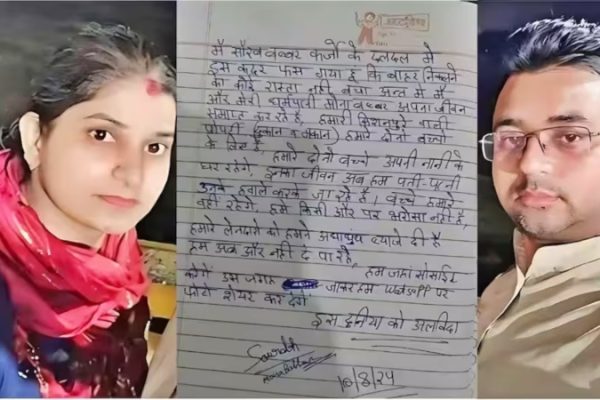 मैं सौरभ बब्बर कर्जो के दलदल में
इस कदर फस गया है कि बाहर निकलने
का कोई रास्ता नहीं बचा अन्त में मैं
और मेरी धर्मपत्नी मोना बब्बर अपना जीवन
समाप्त कर रहे है, हमारी किशनपुरे वाली
प्रोपर्टी (दुकान व मकान) हमारे दोनो बच्चो
के लिए है, हमारे दोनो बच्चे अपनी नानी के
घर रहेंगे, इनका जीवन अब हम पति-पत्नी
उनके हवाले करके जा रहे है। बच्चे हमारे
वही रहेंगे हमें किसी और पर भरोसा नहीं है,
हमारे लेनदारो को हमने अंधाधुंध ब्याजे दी है
हम अब और नहीं दे पा रहे, हम जहां सोसाईड
करेंगे इस जगह जाकर हम WatsaPP पर
फोटो शेयर कर देंगे
इस दुनिया को अलविदा
Saurabh
10/8/24